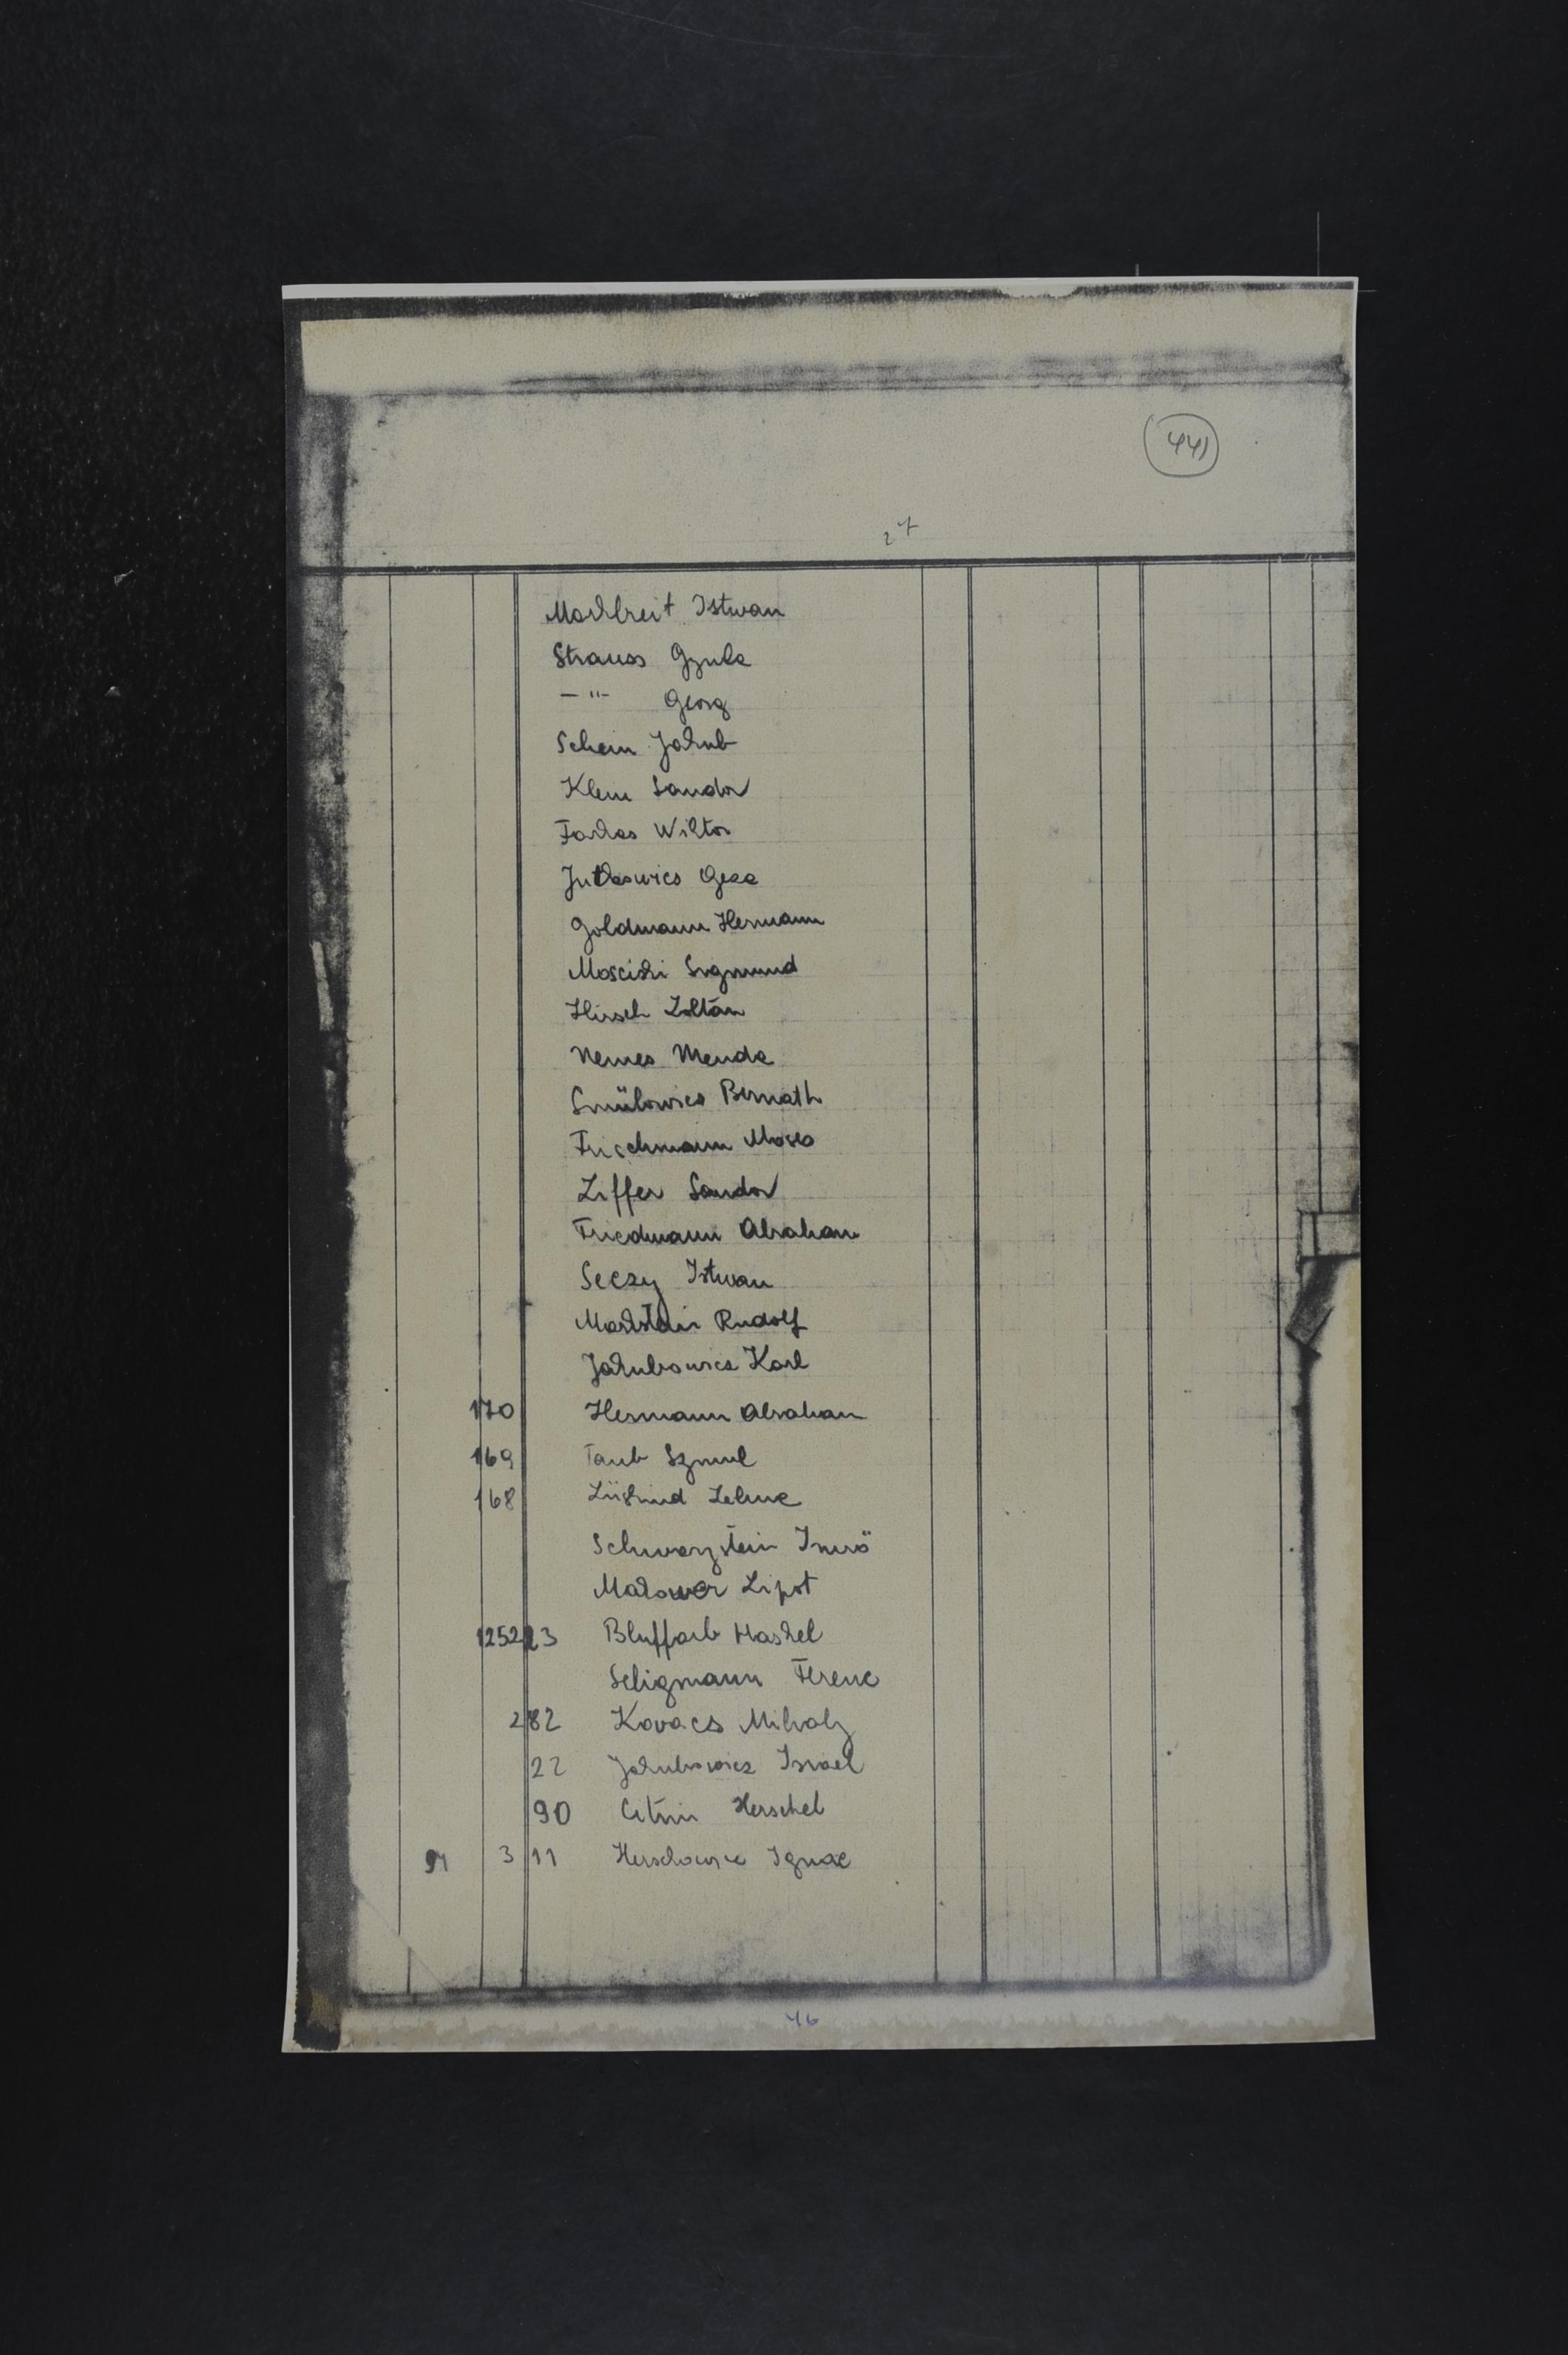 441
27
Markbreit Istwan
Strauss Gyula
— " — Georg
Schein Jakub
Klein Sandor
Farkas Wiktor
Jutkowics Geza
Goldmann Hermann
Moscicki Sigmund
Hirsch Zoltán
Nemes Mende
Smülowics Bernath
Frischmann Moses
Ziffer Sandor
Friedmann Abraham
Seczy Istwan
Markstein Rudolf
Jakubowics Karl
170 Hermann Abraham
169 Taub Szmul
168
Schwarzstein Imrö
Makower Lipot
125223 Bluffarb Haskel
Seligmann Ferenc
282 Kovacs Mihaly
22 Jakubowicz Israel
90 Citrin Herschel
91 311 Herschowic Ignac
46